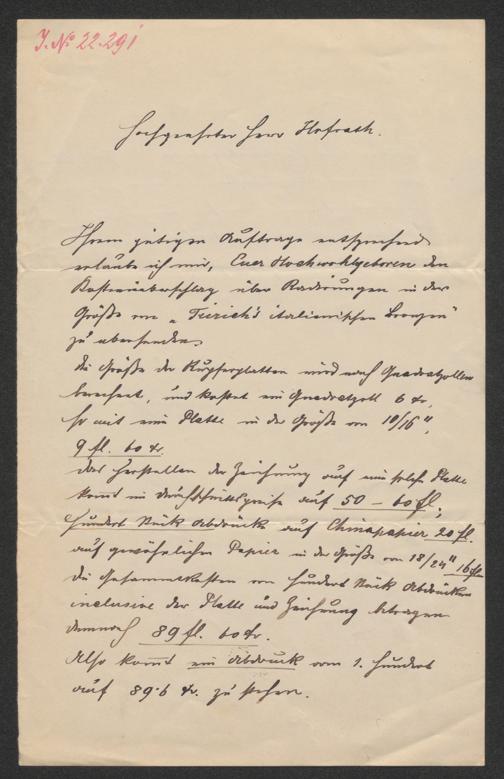 J. No 22.291
Hochgeehrter Herr Hofrath.
Ihrem gütigen Auftrage entsprechend
erlaube ich mir, Euer Hochwohlgeboren den
Kostenüberschlag über Radirungen in der
Größe von „Teirich's italienischen Bronzen"
zu übersenden.
Die Größe der Kupferplatten wird nach Quadratzollen
berechnet, und kostet ein Quadratzoll 6 kr,
somit eine Platte in der Größe von 10/16",
9 fl. 60 kr.
Das Herstellen der Zeichnung auf eine solche Platte
kommt im Durchschnittspreise auf 50 – 60 fl,
hundert Stück Abdrücke auf Chinapapier 20 fl.
auf gewöhnlichen Papier in der Größe von 18/24" 16 fl.
Die Gesammtkosten von hundert Stück Abdrücken
inclusive der Platte und Zeichnung betragen
demnach 89 fl. 60 kr.
Also kommt ein Abdruck vom 1. hundert
auf 89·6 kr. zu stehen.